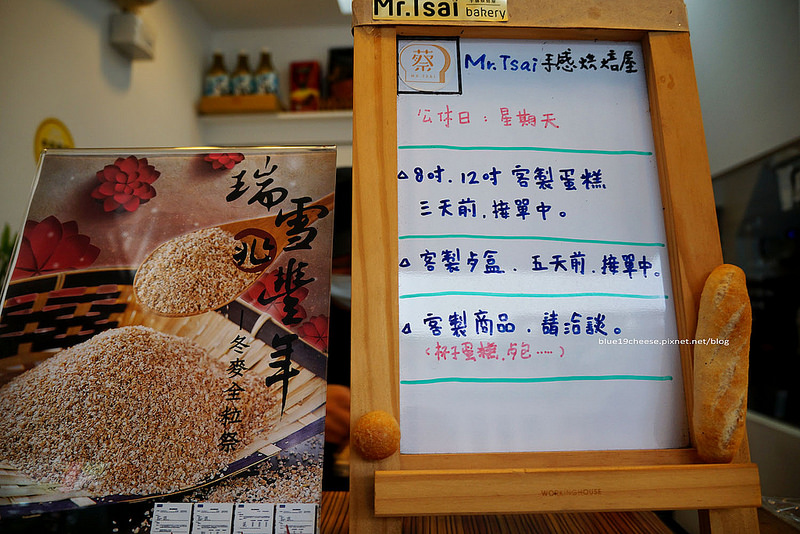 Mr.Tsai bakery
蔡
MR.TSAI
Mr.Tsai 手感烘焙屋
公休日：星期天
△8吋.12吋 客製蛋糕
三天前.接單中。
△客製点盒．五天前.接單中。
△客製商品．請洽談。
（杯子蛋糕.点包……）
blue19cheese.pixnet.net/blog
WORKINGHOUSE
瑞雪兆豐年
冬麥全粒祭